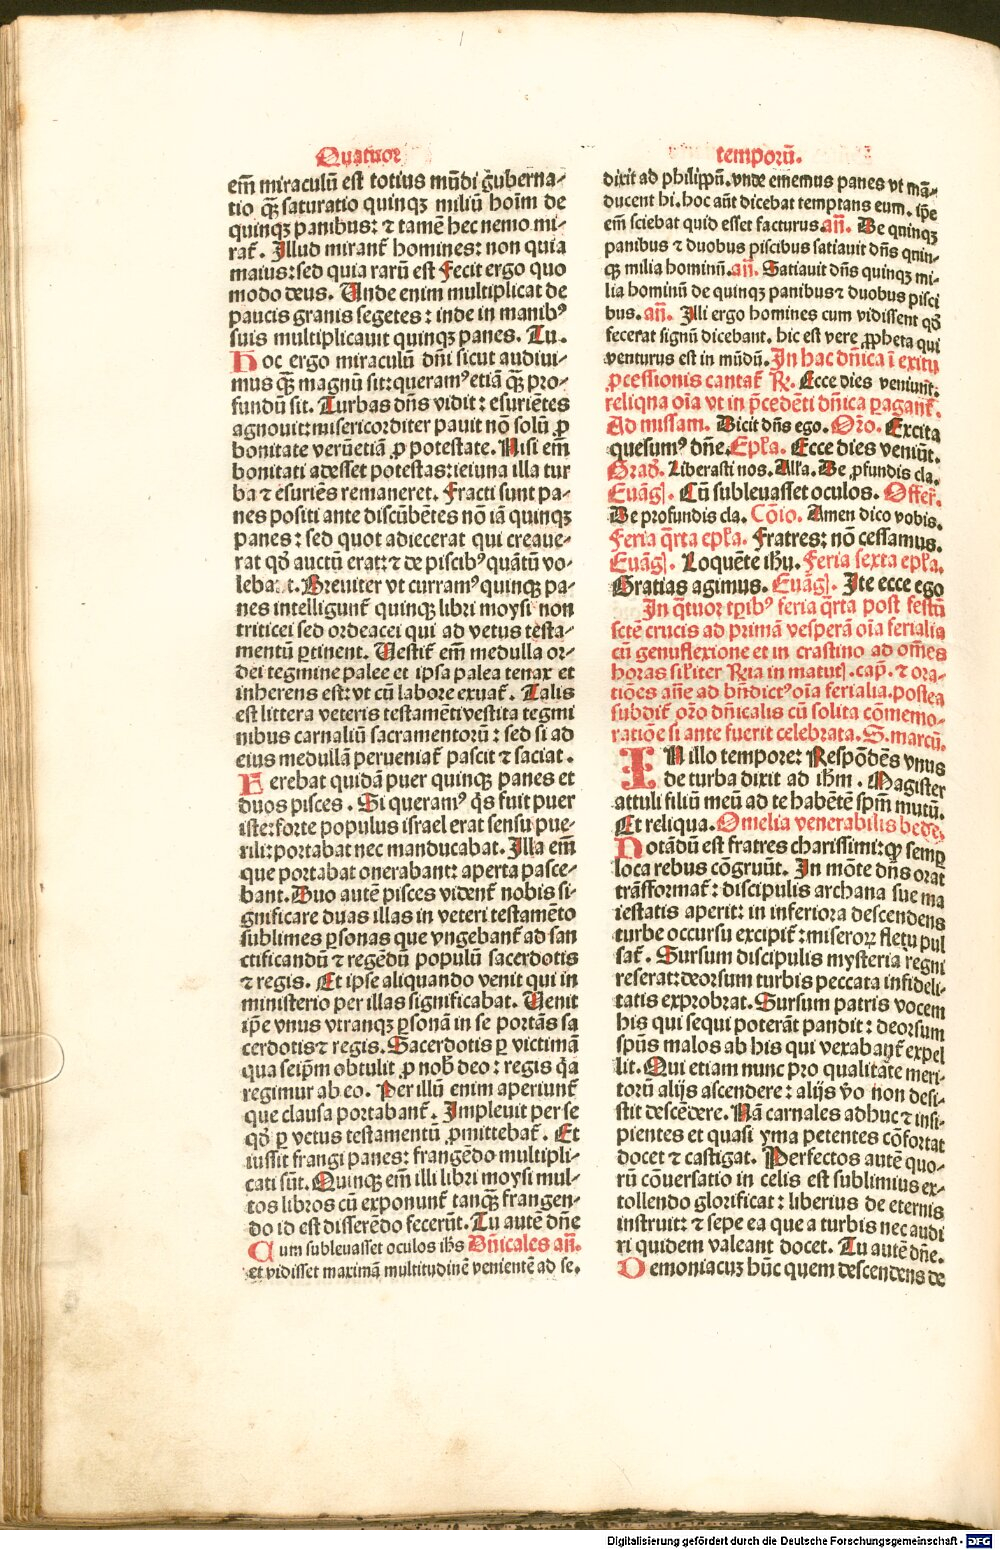 Quatuor temporū.
em̄ miraculū est totius mūdi gu̇berna⸗
tio qȝ̄ saturatio quinqȝ miliū hoīm de
quinqȝ panibus: ⁊ tamē hec nemo mi⸗
rat̄. Illud mirant̄ homines: non quia
maius: sed quia rarū est Fecit ergo quo
modo deus. Unde enim multiplicat de
paucis granis segetes: inde in manibꝰ
suis multiplicauit quinqȝ panes. Tu.
Hoc ergo miraculū dn̄i sicut audiui⸗
mus qȝ̄ magnū sit: queramꝰ etiā qȝ̄ pro⸗
fundū sit. Turbas dn̄s vidit: esuriētes
agnouit: misericorditer pauit nō solū ꝓ
bonitate verūetiā ꝓ potestate. Nisi em̄
bonitati adesset potestas: ieiuna illa tur
ba ⁊ esuriēs remaneret. Fracti sunt pa⸗
nes positi ante discūbētes nō iā quinqȝ
panes: sed quot adiecerat qui creaue⸗
rat qd̄ auctū erat: ⁊ de piscibꝰ quātū vo⸗
leba. t. Breuiter vt curramꝰ quinqȝ pa⸗
nes intelligunt̄ quinqȝ libri moysi non
triticei sed ordeacei qui ad vetus testa⸗
mentū ꝑtinent. Uestit̄ em̄ medulla or⸗
dei tegmine palee et ipsa palea tenax et
inherens est: vt cū labore exuat̄. Talis
est littera veteris testamēti vestita tegmi
nibus carnaliū sacramentorū: sed si ad
eius medullā perueniat̄ pascit ⁊ saciat.
Ferebat quidā puer quinqȝ panes et
duos pisces. Si queramꝰ qͥs fuit puer
iste: forte populus israel erat sensu pue⸗
rili: portabat nec manducabat. Illa em̄
que portabat onerabant: aperta pasce⸗
bant. Duo autē pisces vident̄ nobis si⸗
gnificare duas illas in veteri testamēto
sublimes ꝑsonas que vngebant̄ ad san
ctificandū ⁊ regēdū populū sacerdotis
⁊ regis. Et ipse aliquando venit qui in
ministerio per illas significabat. Uenit
ip̄e vnus vtranqȝ ꝑsonā in se portās sa
cerdotis ⁊ regis. Sacerdotis ꝑ victimā
qua seip̄m obtulit ꝓ nob̄ deo: regis qͣ
regimur ab eo. Per illū enim aperiunt̄
que clausa portabant̄. Impleuit per se
qd̄ ꝑ vetus testamentū ꝓmittebat̄. Et
iussit frangi panes: frangēdo multipli⸗
cati sūt. Quinqȝ em̄ illi libri moysi mul⸗
tos libros cū exponunt̄ tanqȝ̄ frangen⸗
do id est disserēdo fecerūt. Tu autē dn̄e
Cum subleuasset oculos ih̄s Dn̄icales an̄.
et vidisset maximā multitudinē venientē ad se.
dixit ad philippū. vnde ememus panes vt mā⸗
ducent hi. hoc aūt dicebat temptans eum. ip̄e
em̄ sciebat quid esset facturus. an̄. De quinqȝ
panibus ⁊ duobus piscibus satiauit dn̄s quin⸗
qȝ milia hominū. an̄. Satiauit dn̄s quinqȝ mi⸗
lia hominū de quinqȝ panibus ⁊ duobus pisci
bus. an̄. Illi ergo homines cum vidissent qd̄
fecerat signū dicebant. hic est vere ꝓpheta qui
venturus est in mūdū. In hac dn̄ica ī exitu
ꝓcessionis cantat̄ ℟. Ecce dies veniunt.
reliqua oīa vt in p̄cedēti dn̄ica ꝑagant̄.
Ad missam. Dicit dn̄s ego. Or̄o. Excita
quesumꝰ dn̄e. Epl̄a. Ecce dies veniūt.
Grad̄. Liberasti nos. All̄a. De ꝓfundis cla.
Euāgl̄. Cū subleuasset oculos. Offer̄.
De profundis cla. Cōio. Amen dico vobis.
Feria qͣrta epl̄a. Fratres: nō cessamus.
Euāgl̄. Loquēte ihū. Feria sexta epl̄a.
Gratias agimus. Euāgl̄. Ite ecce ego
In qͣtuor tꝑibꝰ feria qͣrta post festū
sctē crucis ad primā vesperā oīa ferialia
cū genuflexione et in crastino ad om̄es
horas sil̄iter ℟ria in matutl̄. cap̄. ⁊ ora⸗
tiōes an̄e ad bn̄dictꝰ oīa ferialia. postea
subdit̄ or̄o dn̄icalis cū solita cōmemo⸗
ratiōe si ante fuerit celebrata. S. marcū.
IN illo tempore: Respōdēs vnus
de turba dixit ad ih̄m. Magister
attuli filiū meū ad te habētē sp̄m mutū.
Et reliqua. Omelia venerabilis bede.
Notādū est fratres charissimi: qꝫ semꝑ
loca rebus cōgruūt. In mōte dn̄s orat
trāsformat̄: discipulis archana sue ma
iestatis aperit: in inferiora descendens
turbe occursu excipit̄: miseroꝝ fletu pul
sat̄. Sursum discipulis mysteria regni
reserat: deorsum turbis peccata infideli⸗
tatis exprobrat. Sursum patris vocem
his qui sequi poterāt pandit: deorsum
spūs malos ab his qui vexabant̄ expel
lit. Qui etiam nunc pro qualitate meri⸗
torū alijs ascendere: alijs v̄o non desi⸗
stit descēdere. Nā carnales adhuc ⁊ insi⸗
pientes et quasi yma petentes cōfortat
docet ⁊ castigat. Perfectos autē quo⸗
rū cōuersatio in celis est sublimius ex⸗
tollendo glorificat: liberius de eternis
instruit: ⁊ sepe ea que a turbis nec audi
ri quidem valeant docet. Tu autē dn̄e.
Demoniacuȝ hūc quem descendens de
Digitalisierung gefördert durch die Deutsche Forschungsgemeinschaft - DFG